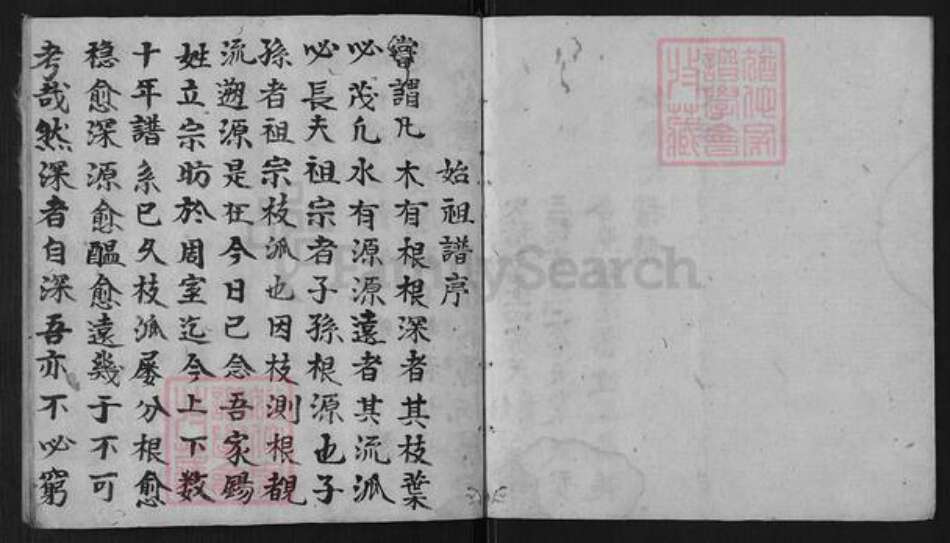 始祖譜序
嘗謂凡木有根根深者其枝葉
必茂凡水有源源遠者其流派
必長夫祖宗者子孫根源也子
孫者祖宗枝派也因枝測根覩
流遡源是在今日已念吾家賜
姓立宗昉於周室迄今上下数
十年譜系已久枝派屡分根愈
穏愈深源愈醖愈遠幾于不可
考哉然深者自深吾亦不必窮
FamilySearch